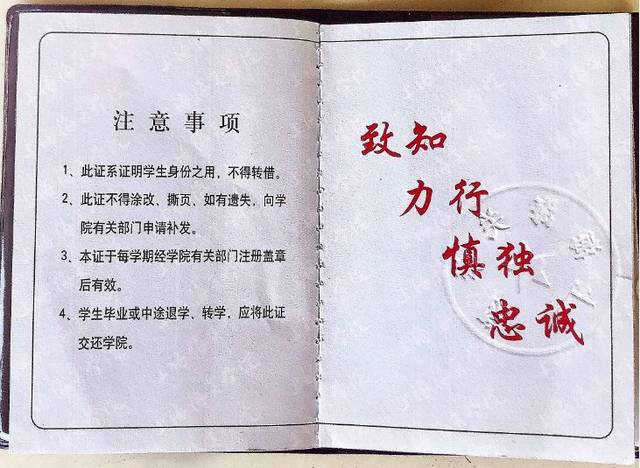 注意事项
1、此证系证明学生身份之用，不得转借。
2、此证不得涂改、撕页、如有遗失，向学
院有关部门申请补发。
3、本证于每学期经学院有关部门注册盖章
后有效。
4、学生毕业或中途退学、转学，应将此证
交还学院。
致知
力行
慎独
忠诚